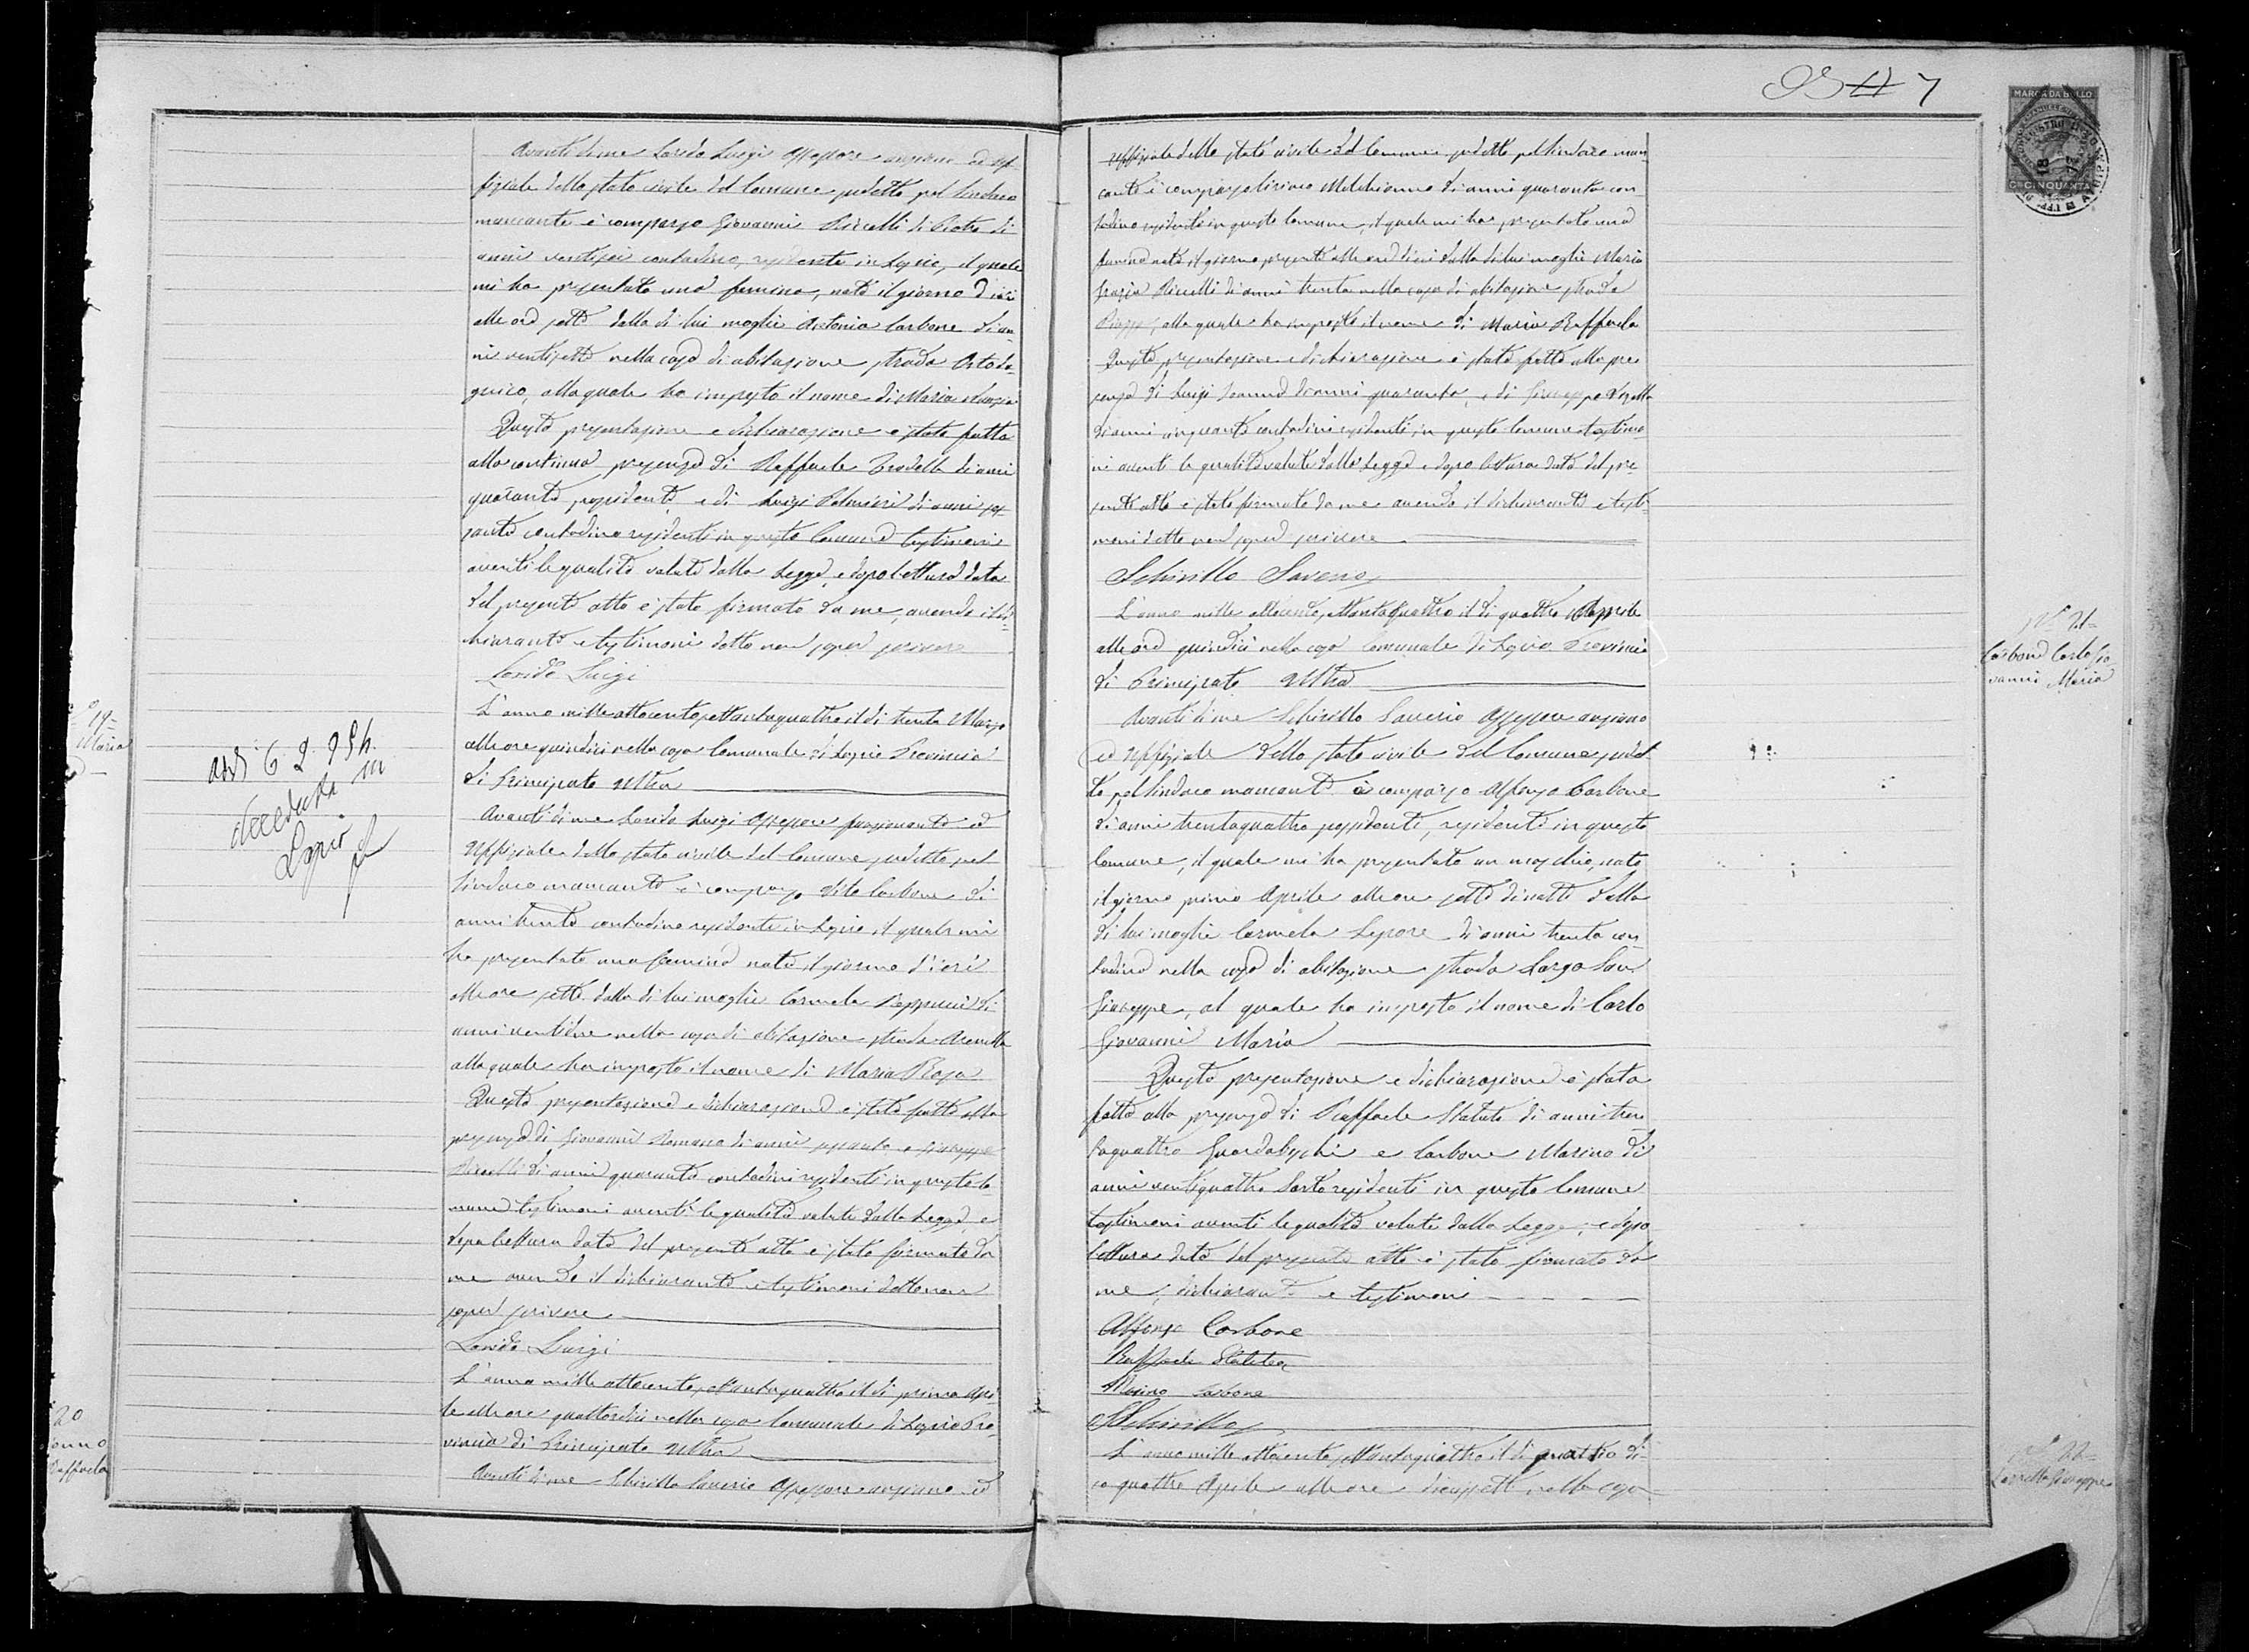 Avanti di me Lorido Luigi Assessore anziano ed uf-
fiziale dello stato civile del Comune sudetto pel Sindaco
mancante è comparso Giovanni Riccelli di Pietro di
anni ventisei contadino, residente in Lapio, il quale
mi ha presentato una femina, nata il giorno d'ieri
alle ore sette dalla di lui moglie Antonia Carbone di an-
ni ventisette nella casa di abitazione strada
alla quale ha imposto il nome di Maria
Questa presentazione e dichiarazione è stata fatta
alla continua presenza di Raffaele di anni
quaranta possidente, e di Luigi Palmieri di anni ses-
santa contadino residenti in questo Comune testimoni
aventi le qualità volute dalla Legge, e dopo lettura data
del presente atto è stato firmato da me, avendo il di-
chiarante e testimoni detto non saper scrivere
Lorido Luigi
19
Maria
L'anno mille ottocento settantaquattro il dì trenta Marzo
alle ore quindici nella casa Comunale di Lapio Provincia
di Principato Ultra
addì 6 2 954
deceduta in
Lapio
Avanti di me Lorido Luigi Assessore funzionante ed
Uffiziale dello stato civile del Comune sudetto pel
Sindaco mancante è comparso Vito Carbone di
anni trenta contadino residente in Lapio, il quale mi
ha presentato una femina nata il giorno d'ieri
alle ore sette dalla di lui moglie Carmela di
anni ventidue nella casa di abitazione strada
alla quale ha imposto il nome di Maria Rosa
Questa presentazione e dichiarazione è stata fatta alla
presenza di Giovanni Romano di anni sessanta e Giuseppe
di anni quaranta contadini residenti in questo Co-
mune testimoni aventi le qualità volute dalla Legge e
dopo lettura data del presente atto è stato firmato da
me avendo il dichiarante e testimoni detto non
saper scrivere
Lorido Luigi
20
Raffaela
L'anno mille ottocento settantaquattro il dì primo Apri-
le alle ore quattordici nella casa Comunale di Lapio Pro-
vincia di Principato Ultra
Avanti di me Schirillo Saverio Assessore anziano ed
7
MARCA DA BOLLO
CINQUANTA
uffiziale dello stato civile del Comune sudetto pel Sindaco man-
cante è comparso di anni quaranta con-
tadino residente in questo Comune, il quale mi ha presentato una
femina nata il giorno presente alle ore dieci dalla di lui moglie Maria
Grazia Riccelli di anni trenta nella casa di abitazione strada
alla quale ha imposto il nome di Maria Raffaela
Questa presentazione e dichiarazione è stata fatta alla pre-
senza di Luigi di anni quaranta, e di Giuseppe
di anni cinquanta contadini residenti in questo Comune testimo-
ni aventi le qualità volute dalla Legge e dopo lettura data del pre-
sente atto è stato firmato da me avendo il dichiarante e testi-
moni detto non saper scrivere
Schirillo Saverio
N° 21
Carbone Carlo Gio-
vanni Maria
L'anno mille ottocento, settantaquattro il dì quattro Aprile
alle ore quindici nella casa Comunale di Lapio Provincia
di Principato Ultra
Avanti di me Schirillo Saverio Assessore anziano
ed Uffiziale dello stato civile del Comune sudet-
to pel Sindaco mancante è comparso Alfonso Carbone
di anni trentaquattro possidente, residente in questo
Comune, il quale mi ha presentato un maschio, nato
il giorno primo Aprile alle ore sette di notte dalla
di lui moglie Carmela Lepore di anni trenta con-
tadina nella casa di abitazione strada Largo San
Giuseppe, al quale ha imposto il nome di Carlo
Giovanni Maria
Questa presentazione e dichiarazione è stata
fatta alla presenza di Raffaele Statuto di anni tren-
taquattro Guardaboschi e Carbone Marino di
anni ventiquattro Sarto residenti in questo Comune
testimoni aventi le qualità volute dalla Legge, e dopo
lettura data del presente atto è stato firmato da
me, dichiarante e testimoni
Alfonso Carbone
Raffaele
Marino Carbone
Schirillo
N° 22
Giuseppe
L'anno mille ottocento, settantaquattro il dì quattro di-
co quattro Aprile alle ore diciassette nella casa